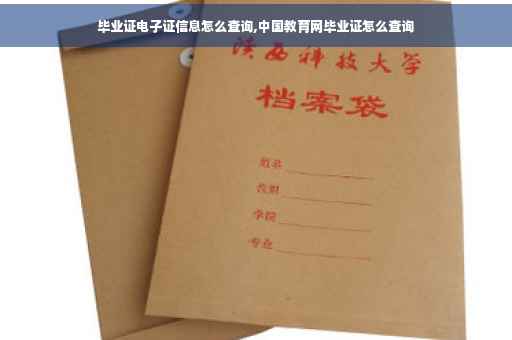 毕业证电子证信息怎么查询,中国教育网毕业证怎么查询
陕西科技大学
档案袋
姓名
学院
专业